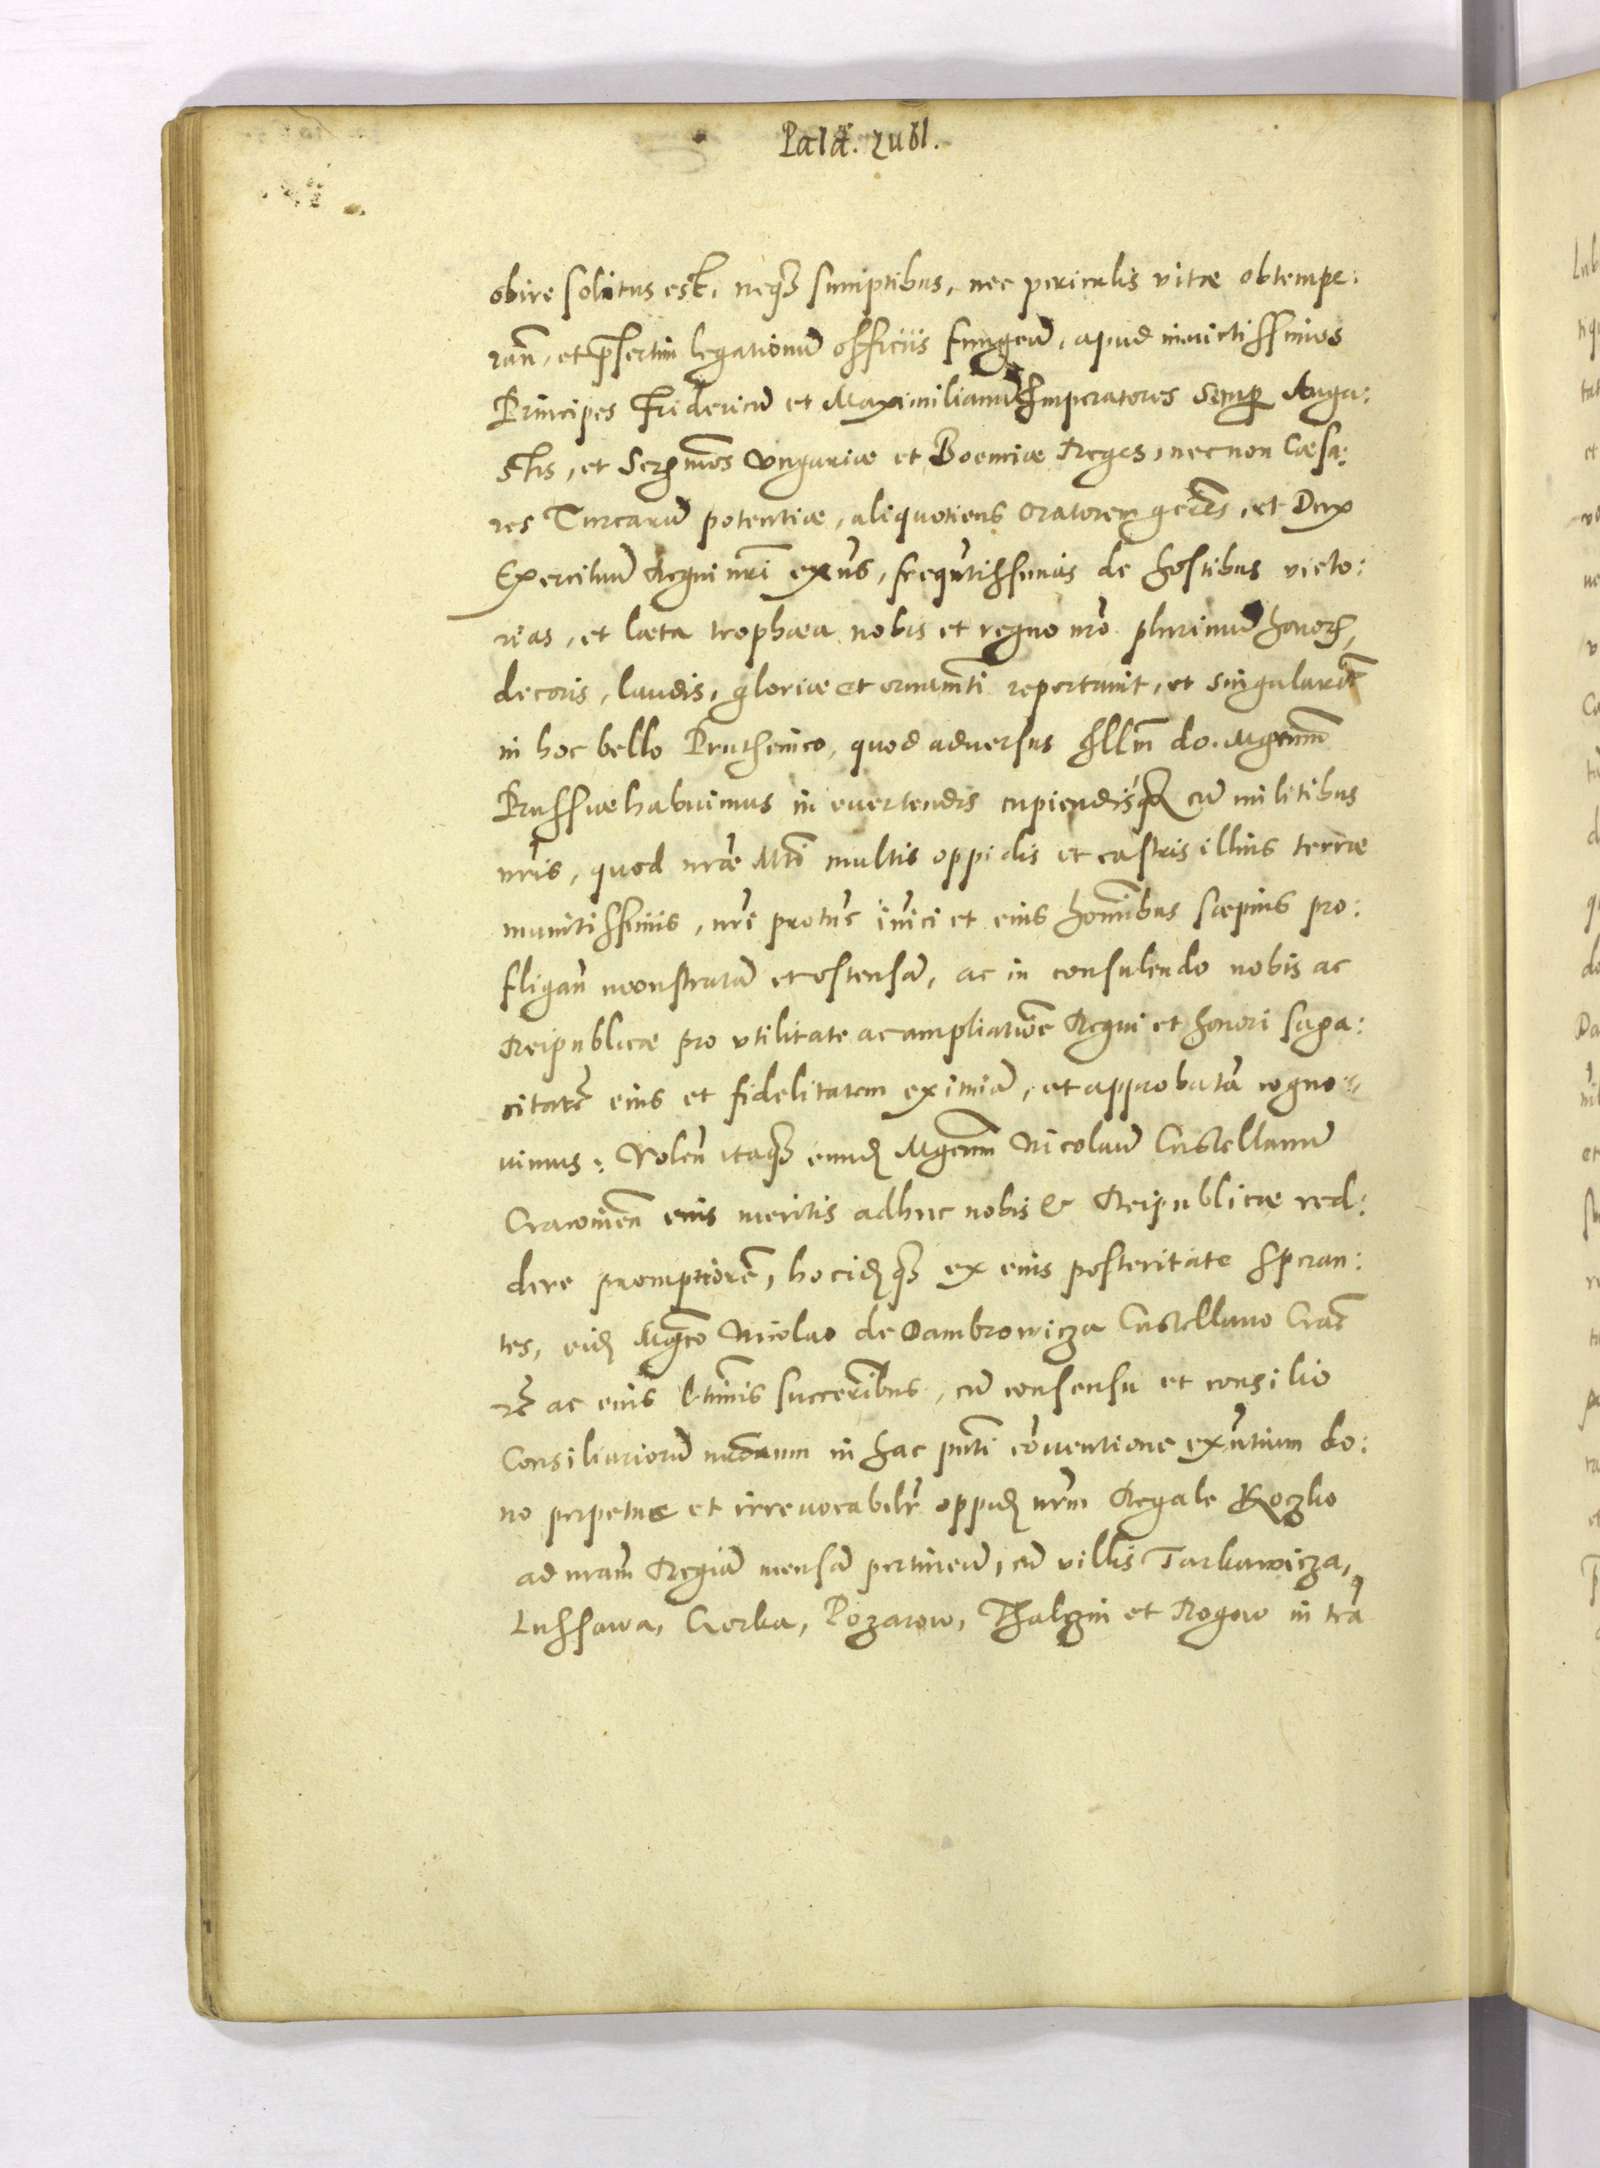 Palat. Lubl.
obire solitus est, neqz sumptibus, nec periculis vitae obtempe:
ran̄, et p̄sertim legationū officiis fungen̄, apud invictissimos
Principes Fridericū et Maximilianū Imperatores semp Augu:
stos, et Serenmos Vngariae et Boemiae Reges, necnon Caesa:
res Turcarū potentiae, aliquotiens oratorem gerens, et Dux
Exercituū Regni nr̄i exn̄s, frequētissimas de hostibus victo:
rias, et laeta trophaea nobis et regno nr̄o plurimū honoris,
decoris, laudis, gloriae et ornamēti reportavit, et singularit̄
in hoc bello Pruthenico, quod adversus Illm̄ do. Mgrum̄
Prussiae habuimus in evertendis cupiendisqz cū militibus
nr̄is, quod nr̄ae Mti multis oppidis et castris illius terrae
munitissimis, nr̄i protūc īnici et eius hom̄ibus saepius pro:
fligan̄ monstratā et ostensā, ac in consulendo nobis ac
Reipublicae pro vtilitate ac ampliatiōe Regni et honori saga:
citatē eius et fidelitatem eximiā, et approbatā cogno:
uimus: Volen̄ itaqz eund Mgcum̄ Nicolaū Castellanū
Cracouien̄ eius meritis adhuc nobis & Reipublicae red:
dere promptiorē, hoc idqz ex eius posteritate speran:
tes, eid Mgco Nicolao de Dambrowicza Castellano Crac̄
etc̄ ac eius ltimis successoribus, cū consensu et consilio
Consiliariorū nrorum in hac pn̄ti cōuentione exn̄tium do:
no perpetuo et irreuocabilr̄ oppid nr̄m Regale Koczko
ad nram̄ Regiā mensā pertinen̄, cū villis Tarkawicza,
Lussawa, Czerka, Pozarow, Thalczin et Rogow in tr̄a